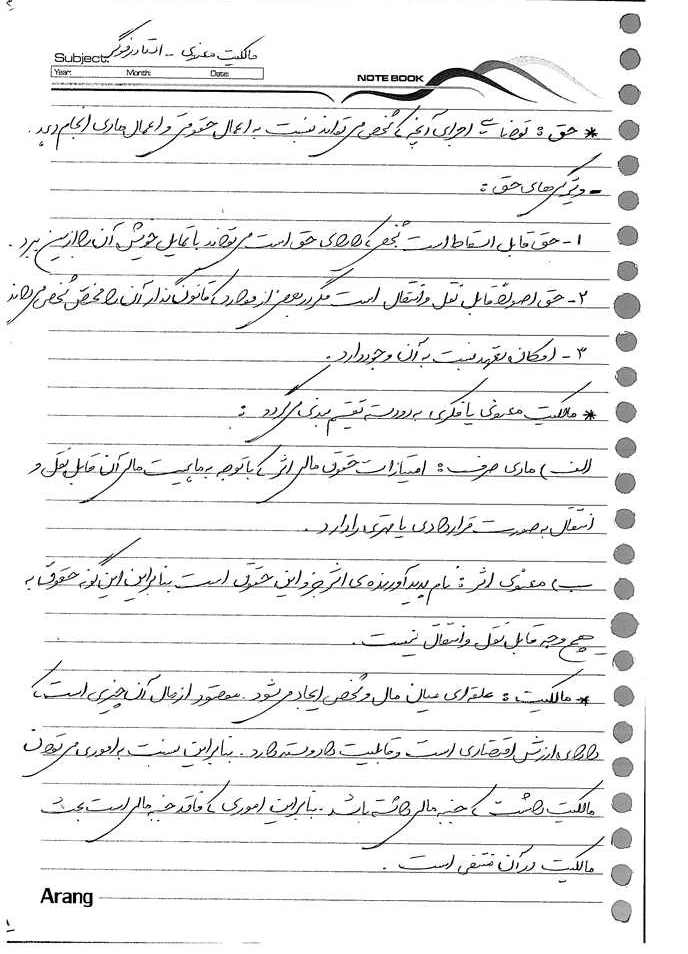 Subject: مالکیت معنوی - استاد زرگر
Year: Month: Date:
NOTE BOOK
* حق : توانایی اجرای آنچه که شخص می تواند نسبت به اعمال حقوقی و اعمال مادی انجام دهد.
- ویژگی های حق :
۱- حق قابل اسقاط است شخصی که دارای حق است می تواند با تمایل خویش آن را از بین ببرد.
۲- حق اصولاً قابل نقل و انتقال است مگر در بعضی از موارد که قانون گذار آن را مختص شخص می داند
۳- امکان تعهد نسبت به آن وجود دارد.
* مالکیت معنوی یا فکری به دو دسته تقسیم بندی می گردد :
الف) مادی صرف : امتیازات حقوق مالی اثر که با توجه به ماهیت مالی آن قابل نقل و
انتقال به صورت قراردادی یا قهری را دارد.
ب) معنوی اثر : نام پدیدآورنده ی اثر جزو این حقوق است بنابراین این گونه حقوق به
هیچ وجه قابل نقل و انتقال نیست.
* مالکیت : علقه ای میان مال و شخص ایجاد می شود. مقصود از مال آن چیزی است که
دارای ارزش اقتصادی است و قابلیت داد و ستد دارد. بنابراین نسبت به اموری می توان
مالکیت داشت که جنبه مالی داشته باشد. بنابراین اموری که فاقد جنبه مالی است بحث
مالکیت در آن منتفی است.
Arang
۱